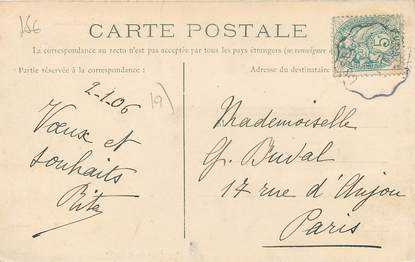 35€
CARTE POSTALE
La correspondance au recto n'est pas acceptée par tous les pays étrangers (se renseigner
Partie réservée à la correspondance :
Adresse du destinataire
2-1-06
19)
Vœux et
souhaits
Rita
Mademoiselle
G. Buval
17 rue d'Anjou
Paris
5